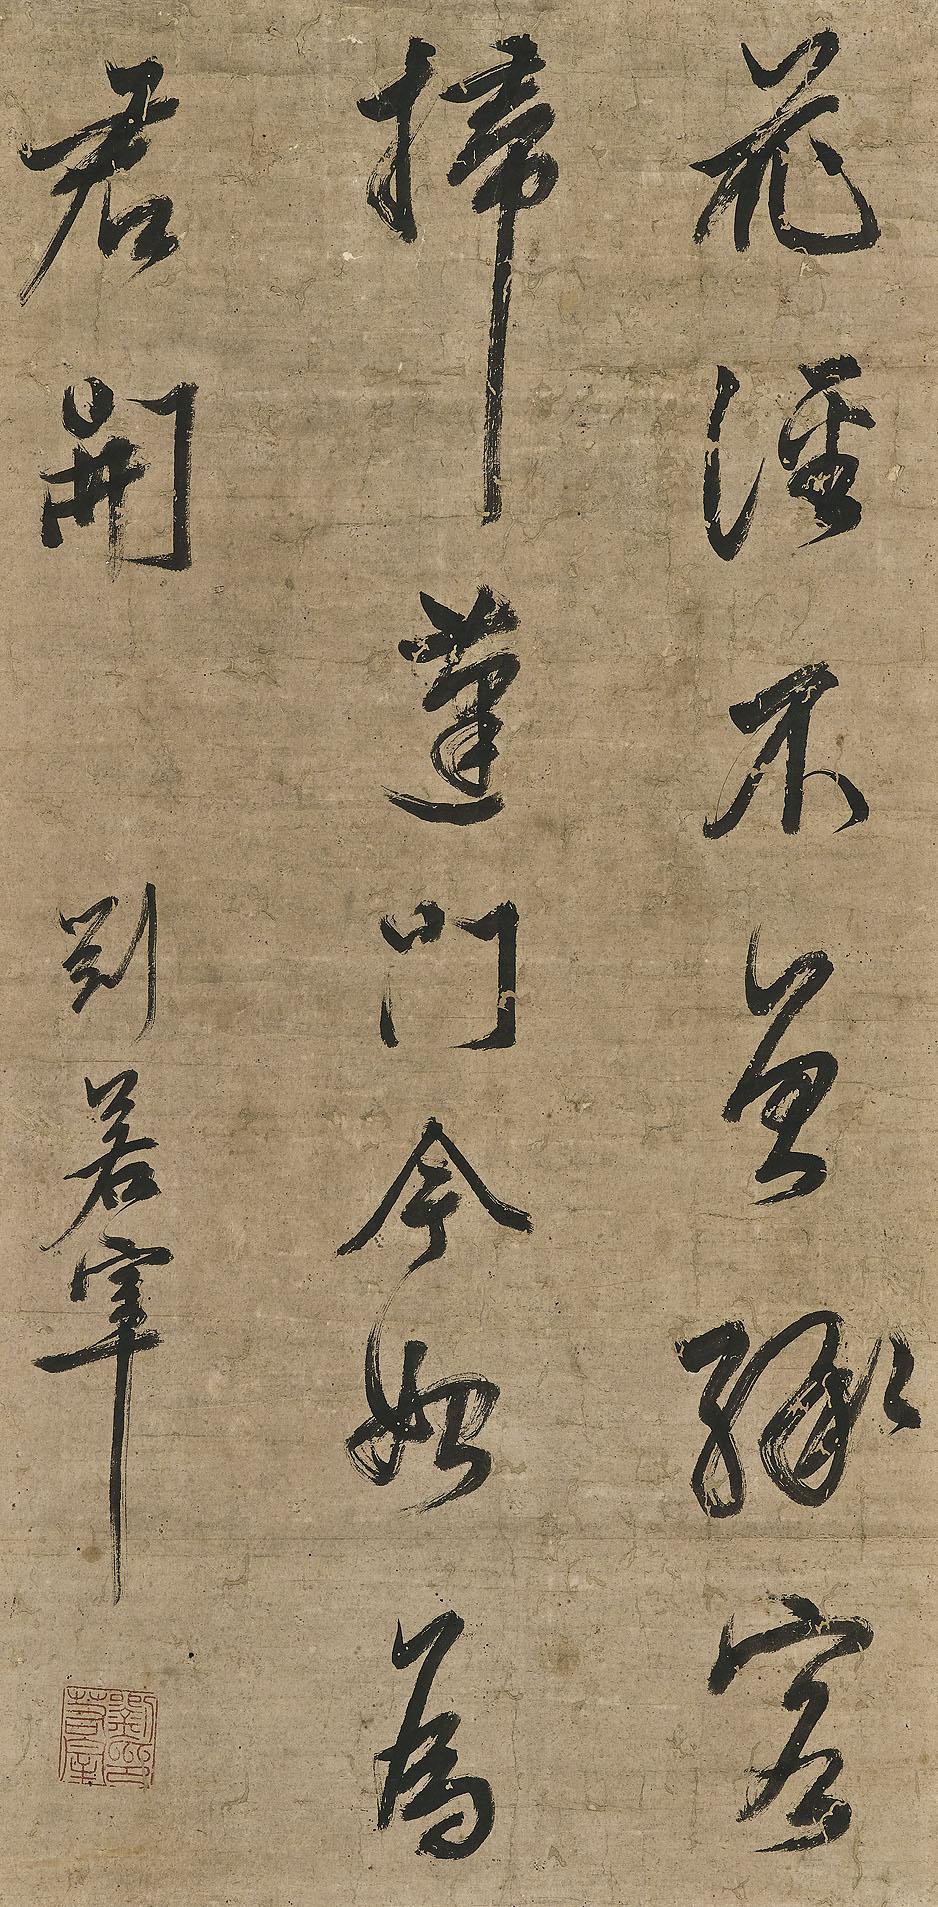 花徑不曾緣客
掃蓬門今始為
君開 劉若宰
劉印
若宰